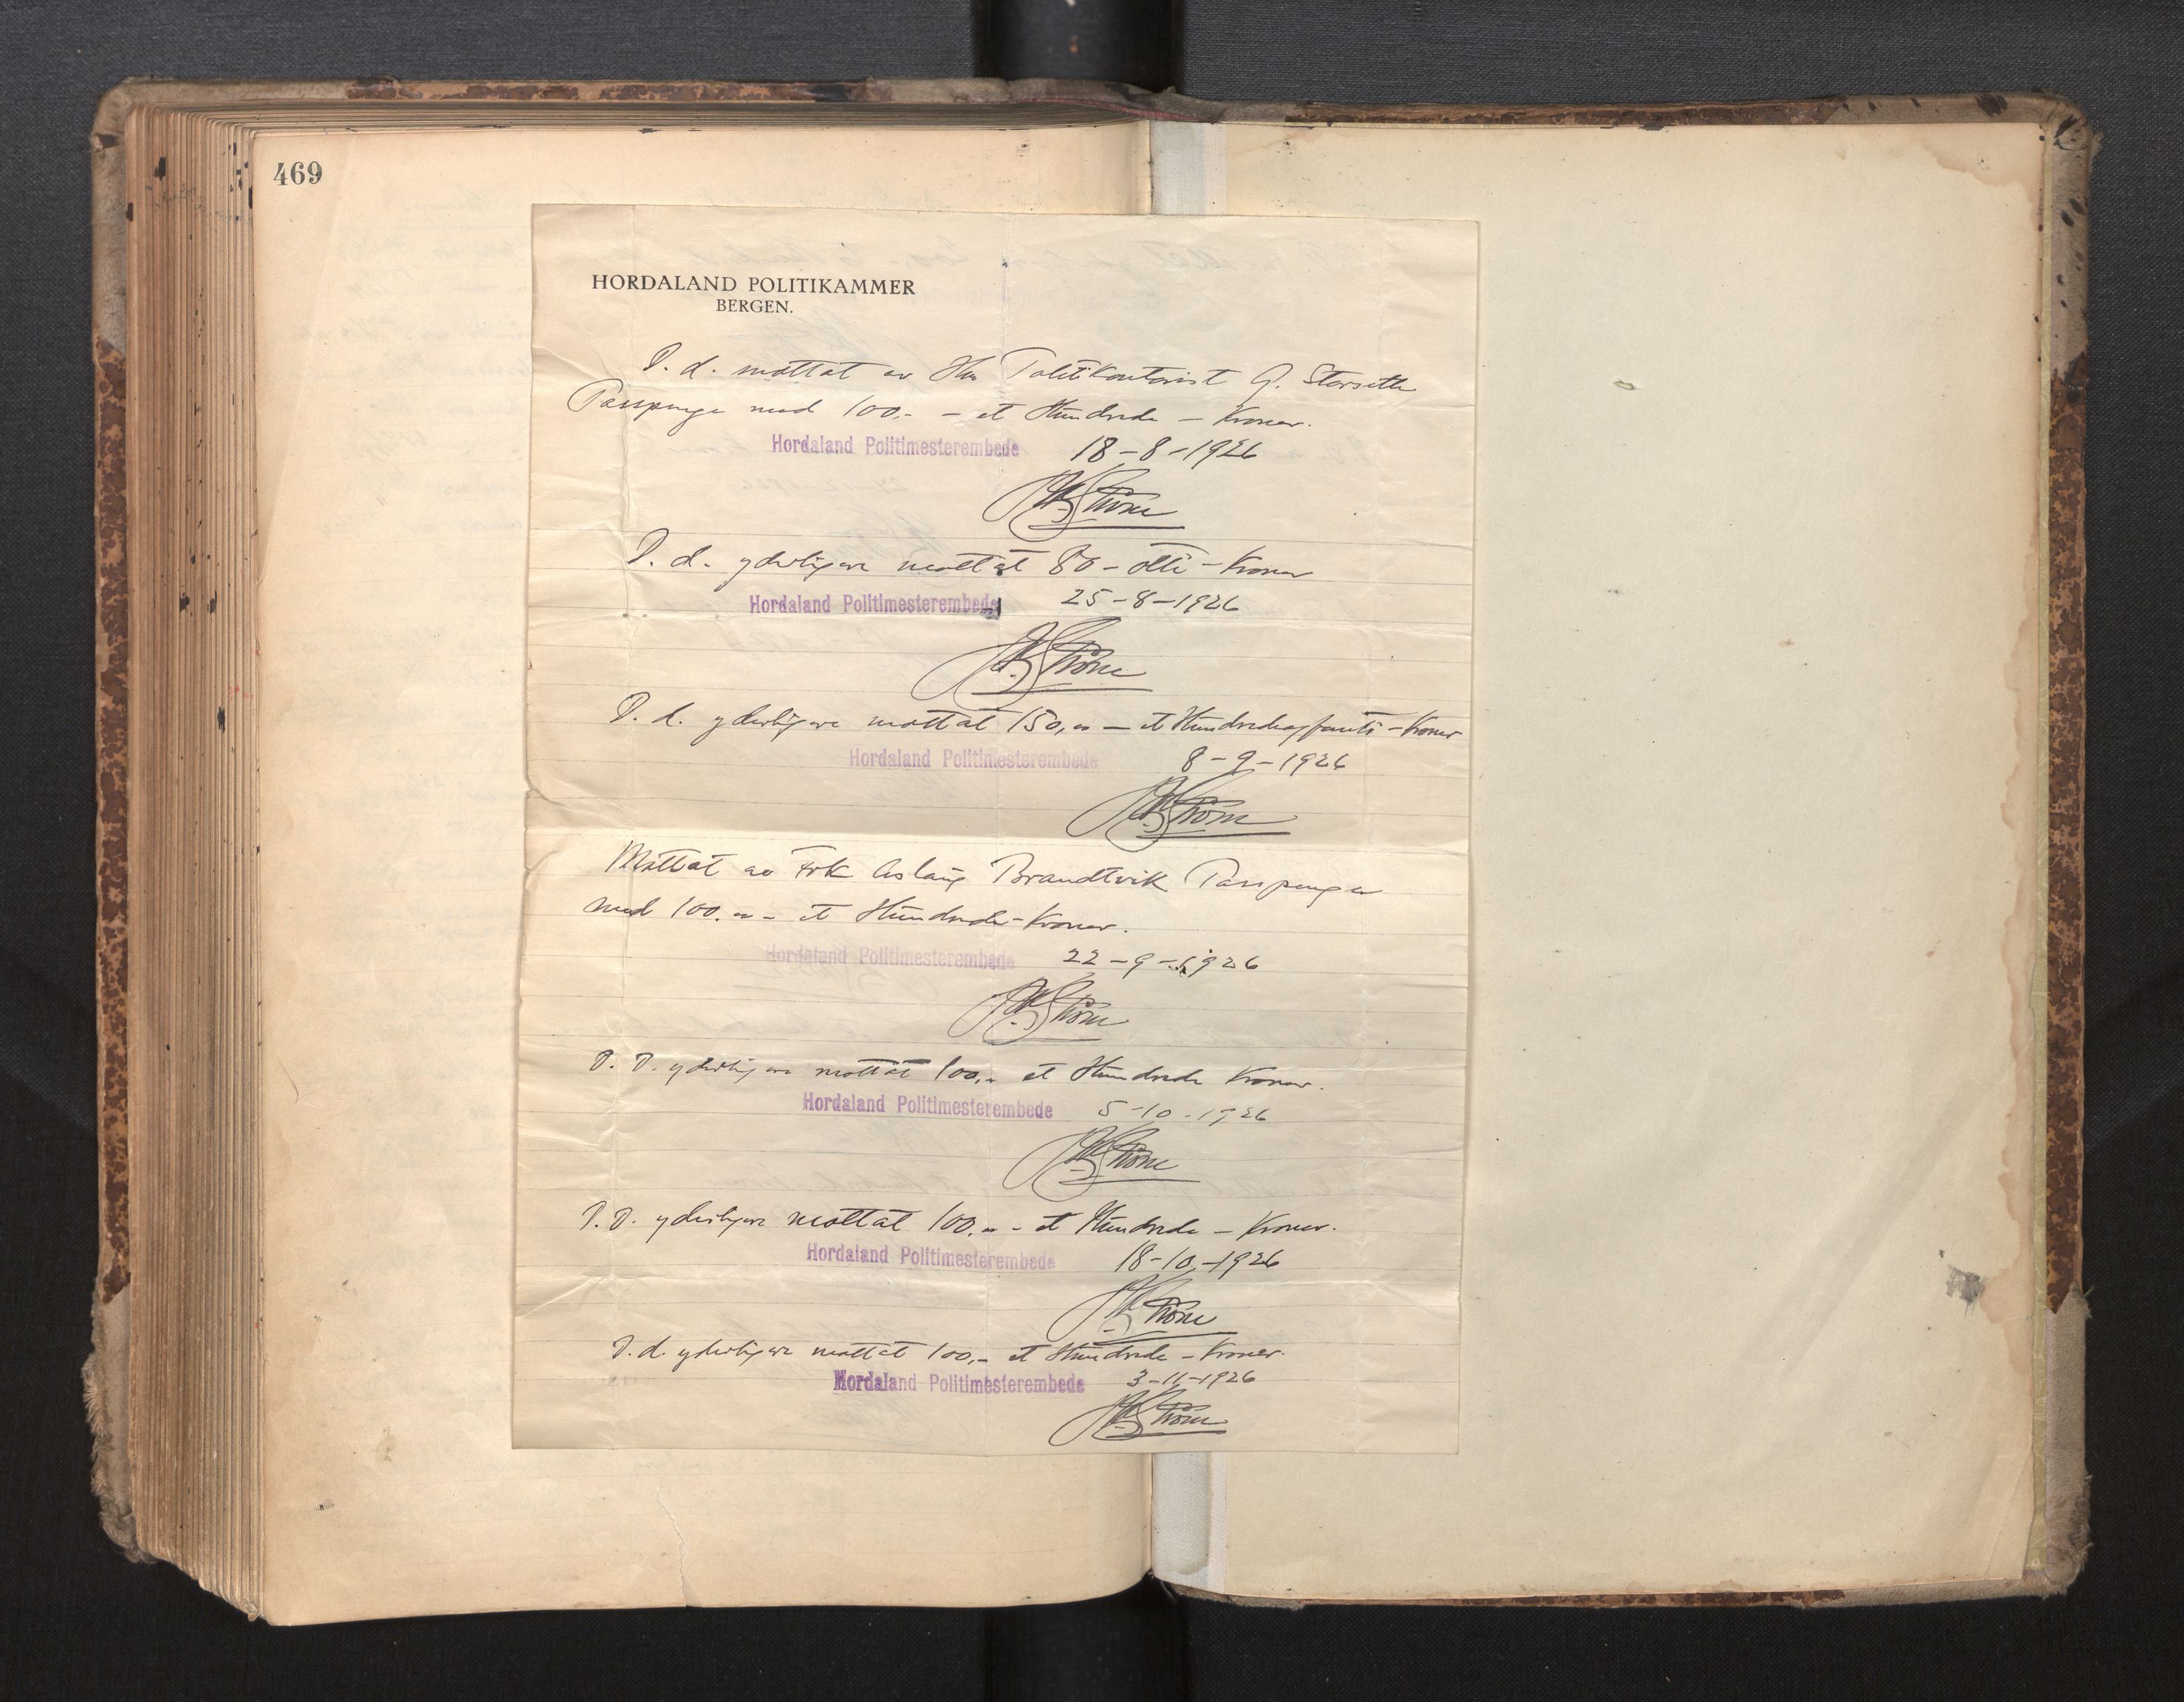 469
HORDALAND POLITIKAMMER
BERGEN.
D. d. mottat av Hr. Politikontorist G. Storseth
Passpenge med 100.- - et Hundrede - Kroner.
Hordaland Politimesterembede 18-8-1926
Strøm
D. d. yderligere mottat 80 - otti - Kroner
Hordaland Politimesterembede 25-8-1926
Strøm
D. d. yderligere mottat 150,- - et Hundredeogfemti - Kroner
Hordaland Politimesterembede 8-9-1926
Strøm
Mottat av Frk Aslaug Brandtvik Passpenger
med 100.- - et Hundrede - Kroner.
Hordaland Politimesterembede 22-9-1926
Strøm
D. D. yderligere mottat 100,- et Hundrede Kroner.
Hordaland Politimesterembede 5-10-1926
Strøm
D. D. yderligere mottat 100.- - et Hundrede - Kroner.
Hordaland Politimesterembede 18-10-1926
Strøm
D. d. yderligere mottat 100,- et Hundrede - Kroner.
Hordaland Politimesterembede 3-11-1926
Strøm